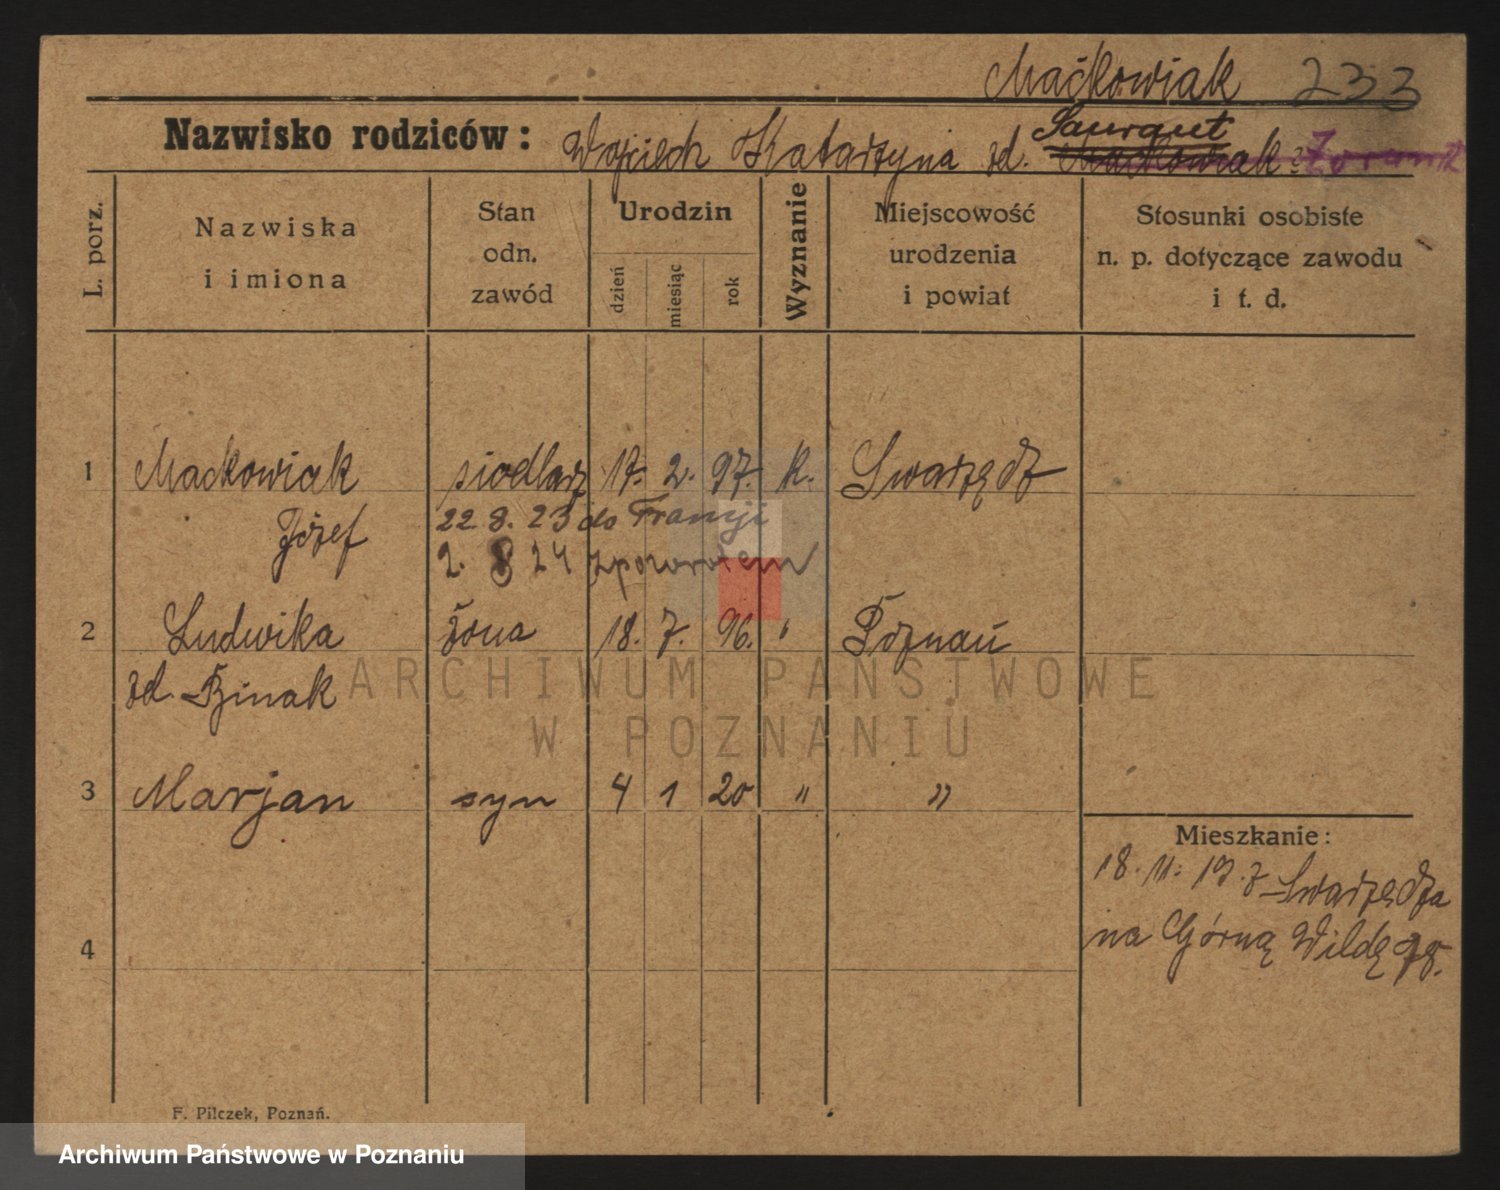 Maćkowiak 233
Nazwisko rodziców: Wojciech Katarzyna zd.
L. porz.
Nazwiska i imiona
Stan odn. zawód
Urodzin
dzień
miesiąc
rok
Wyznanie
Miejscowość urodzenia i powiat
Stosunki osobiste n. p. dotyczące zawodu i t. d.
1 Maćkowiak siodlarz 17. 2. 97. k. Swarzędz
Józef 22 8. 23 do Francji
2. 8 24 zpowrotem
2 Ludwika żona 18. 7. 96. " Poznań
zd.
3 Marjan syn 4 1 20 " "
Mieszkanie:
18. 11. 19. z Swarzędza
na Górną Wildę 78.
4
F. Pilczek, Poznań.
ARCHIWUM PAŃSTWOWE
W POZNANIU
Archiwum Państwowe w Poznaniu